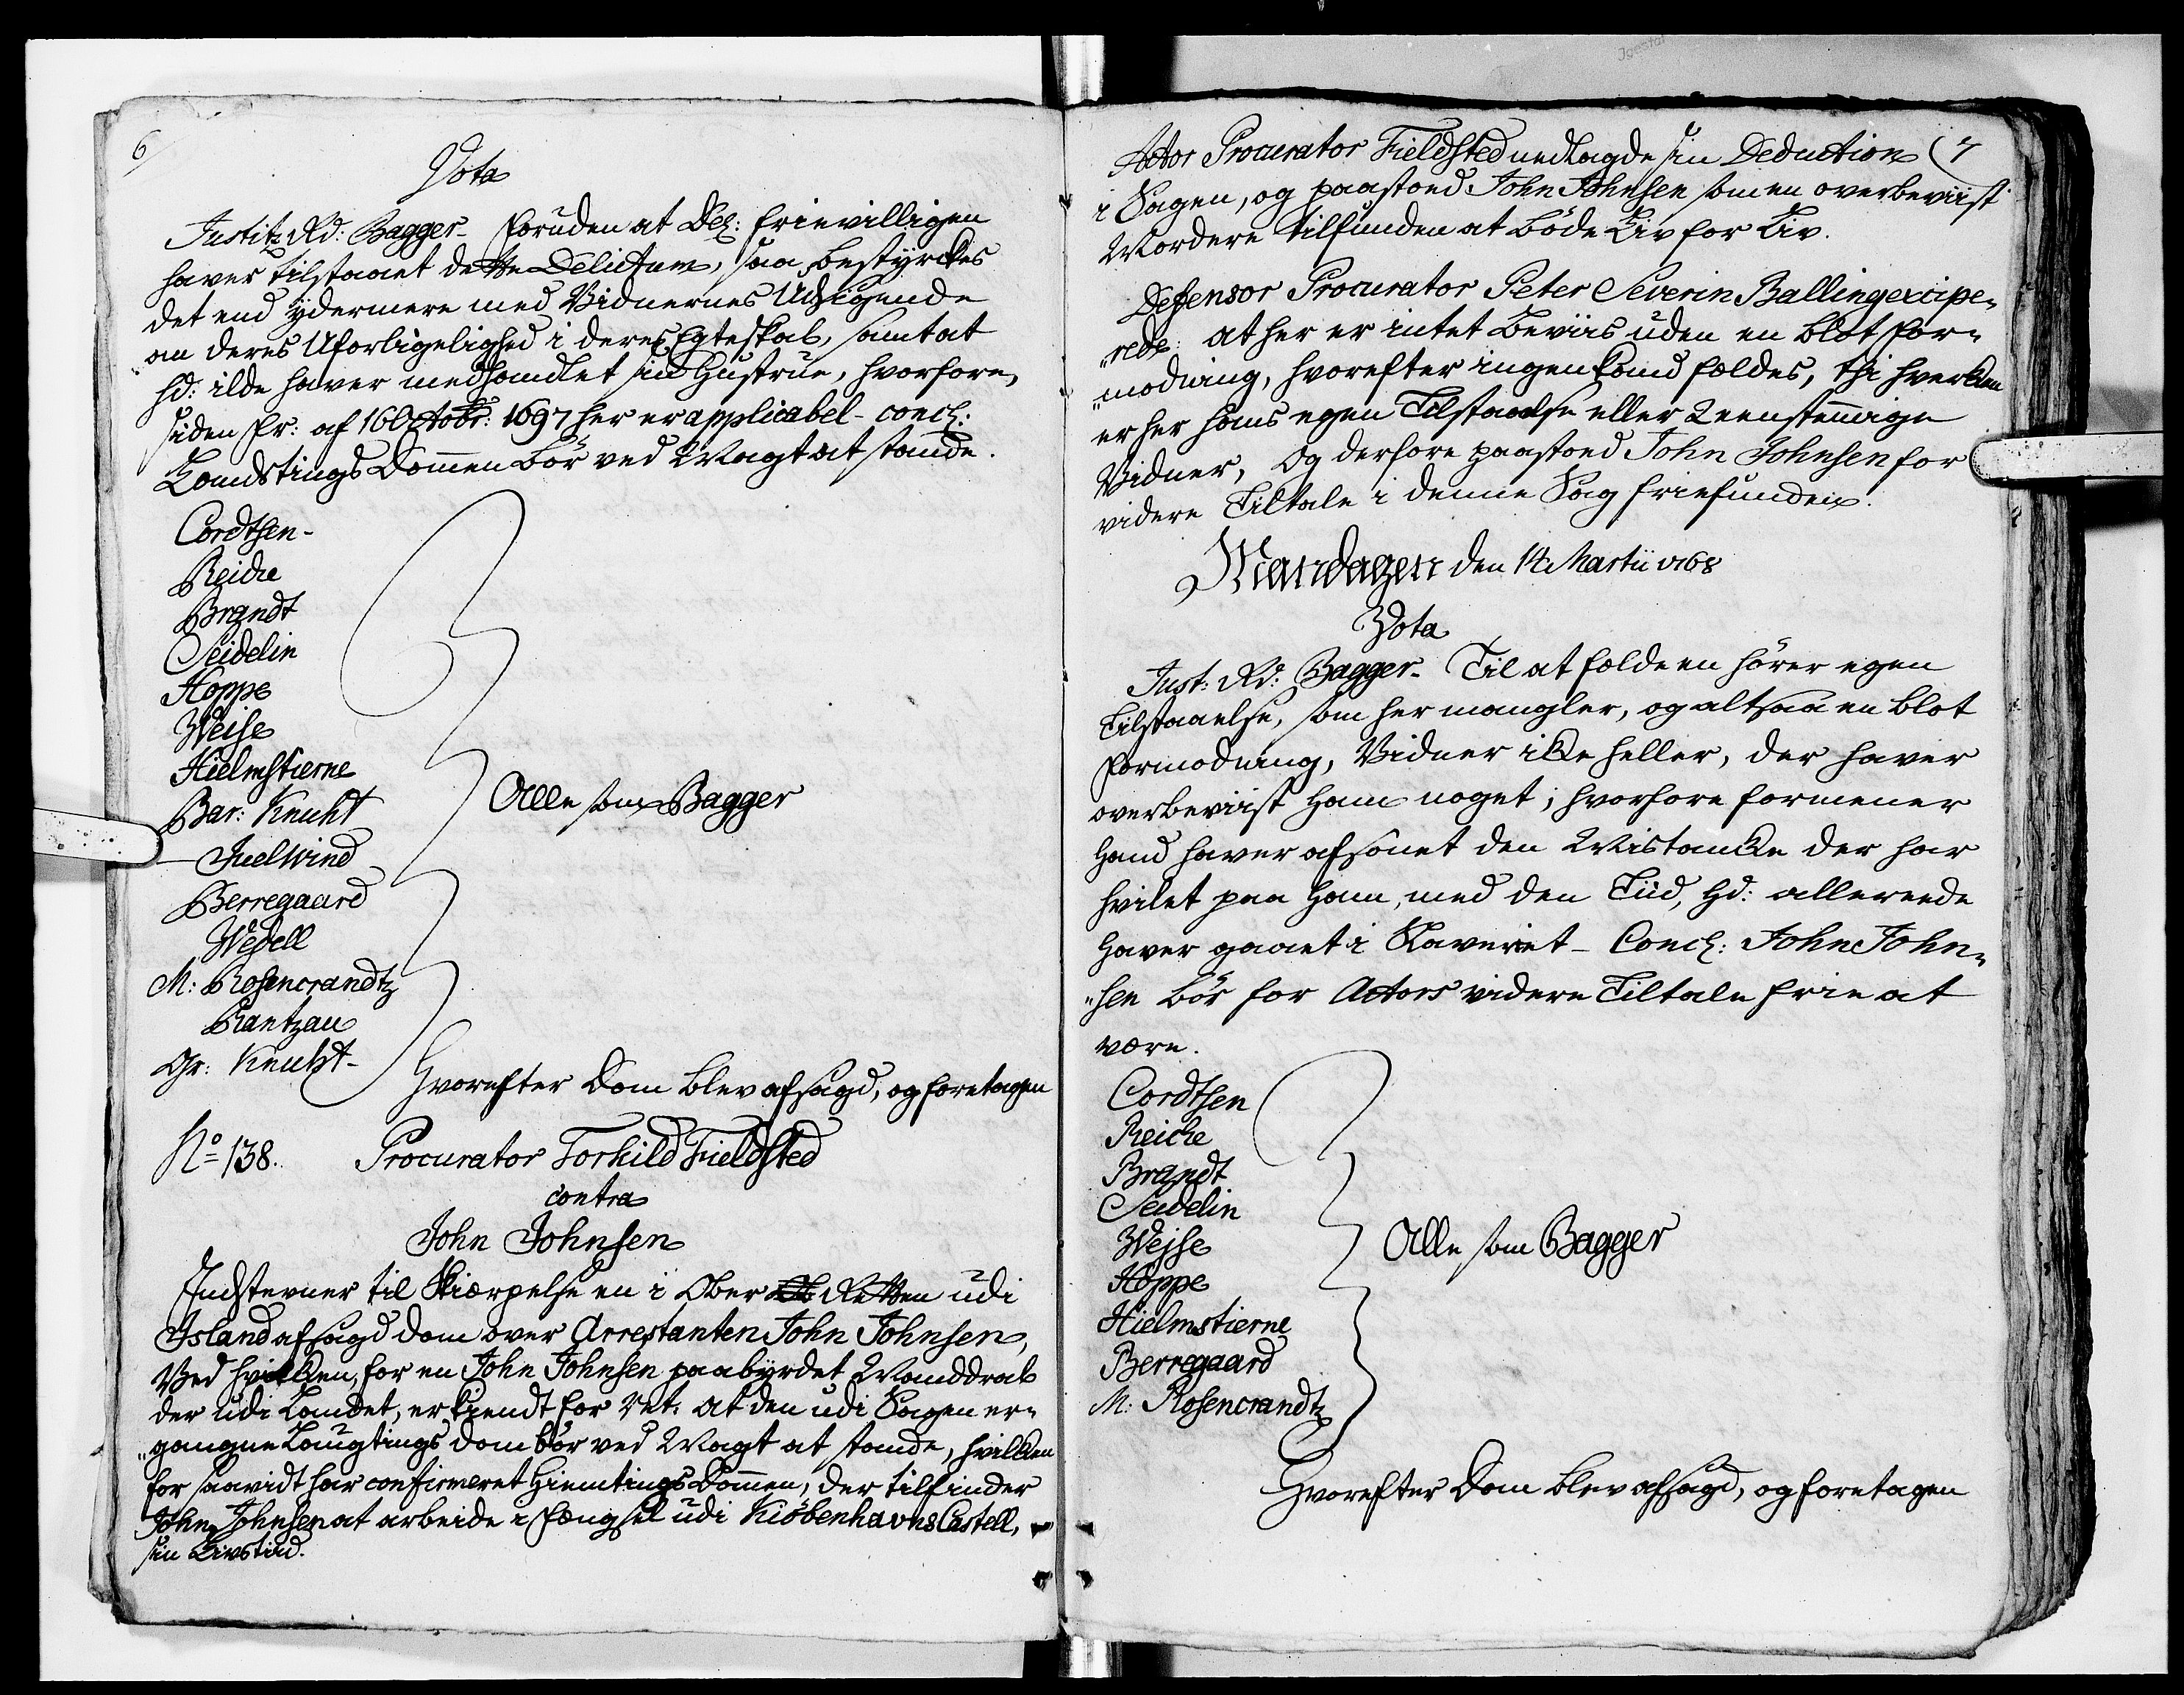 6
Vota
Justitz Rd: Bagger- foruden at Del: frievilligen
haver tilstaaet dette Delictum, saa bestyrckes
det end ydermere med Vidnernes Udsigende
om deres Uforligelighed i deres Egteskab, samt at
hd: ilde haver medhandlet sin Hustrue, hvorfore,
siden Fr: af 16 Octobr: 1697 her er applicabel- concl:
Landstings Dommen bör ved Magt at stande.
Cordtsen-
Reiche
Brandt
Seidelin
Hoppe
Weise
Hielmstierne
Bar: Knuht
Juel Wind
Berregaard
Wedell
M: Rosencrandtz
Rantzau
Gr: Knuht-
Alle som Bagger
Hvorefter Dom blev afsagd, og foretagen
No 138. Procurator Torkild Fieldsted
contra
John Johnsen
Indstevner til Skiærpelse en i Ober Retten udi
Island afsagd dom over Arrestanten John Johnsen,
Ved hvilken, for en John Johnsen paabyrdet Manddrab
der udi Landet, er kiendt for Ret: at den udi Sagen er-
"gangne Laugtings dom bör ved Magt at stande, hvilken
for saavidt har confirmeret Hiemtings Dommen, der tilfinder
John Johnsen at arbeide i Fængsel udi Kiöbenhavns Castell,
sin Livstiid.
7
Actor Procurator Fieldsted nedlagde sin Deduction
i Sagen, og paastoed John Johnsen som en overbeviist
Mordere tilfunden at böde Liv for Liv.
Defensor Procurator Peter Severin Balling excipe-
"rede: at her er intet Beviis uden en blot for-
"modning, hvorefter ingen kand fældes, thi hverken
er her hans egen Tilstaaelse eller 2 eenstemmige
Vidner, Og derfore paastoed John Johnsen for
videre Tiltale i denne Sag friefunden.
Mandagen den 14 Martii 1768
Vota
Just: Rd: Bagger- Til at fælde en hörer egen
Tilstaaelse, som her mangler, og altsaa en blot
formodning, Vidner ikke heller, der haver
overbeviist ham noget; hvorfore formener
hand haver afsonet den Mistanke der har
hvilet paa ham, med den Tiid, hd: allereede
haver gaaet i Slaveriet- Concl: John John-
"sen bör for Actors videre Tiltale frie at
være.
Cordtsen
Reiche
Brandt
Seidelin
Weise
Hoppe
Hielmstierne
Berregaard
M: Rosencrandtz
Alle som Bagger
Hvorefter Dom blev afsagd, og foretagen